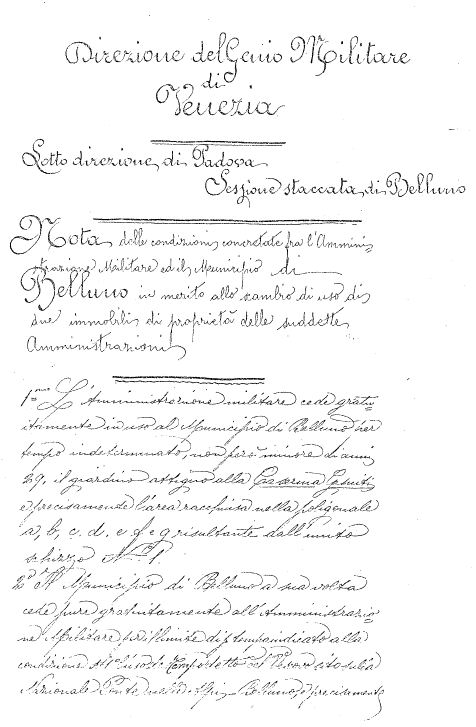 Direzione del Genio Militare
di
Venezia
Sotto direzione di Padova
Sezione staccata di Belluno
Nota delle condizioni concretate fra l'Ammini-
strazione Militare ed il Municipio di
Belluno in merito allo scambio di uso di
due immobili di proprietà delle suddette
Amministrazioni
1.mo L'Amministrazione militare cede gratu-
itamente in uso al Municipio di Belluno per
tempo indeterminato, non però minore di anni
29, il giardino attiguo alla Caserma Gesuiti
e precisamente l'area racchiusa nella poligonale
a, b, c, d, e f e g risultante dall'unito
schizzo N° 1.
2° Il Municipio di Belluno a sua volta
cede pure gratuitamente all'Amministrazio-
ne Militare per il limite di tempo indicato alla
condizione N° 1
Nazionale Ponte nelle Alpi Belluno e precisamente